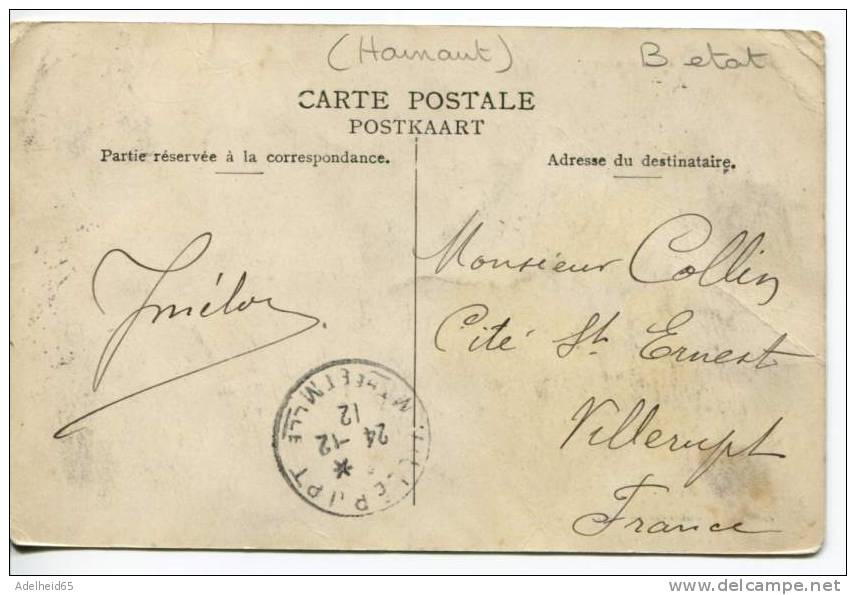 (Hainaut) B etat
CARTE POSTALE
POSTKAART
Partie réservée à la correspondance.
Adresse du destinataire.
Monsieur Collin
Cité St Ernest
Villerupt
France
VILLERUPT
MTHE ET MLLE
24-12
12
Adelheid65
delcampe.net